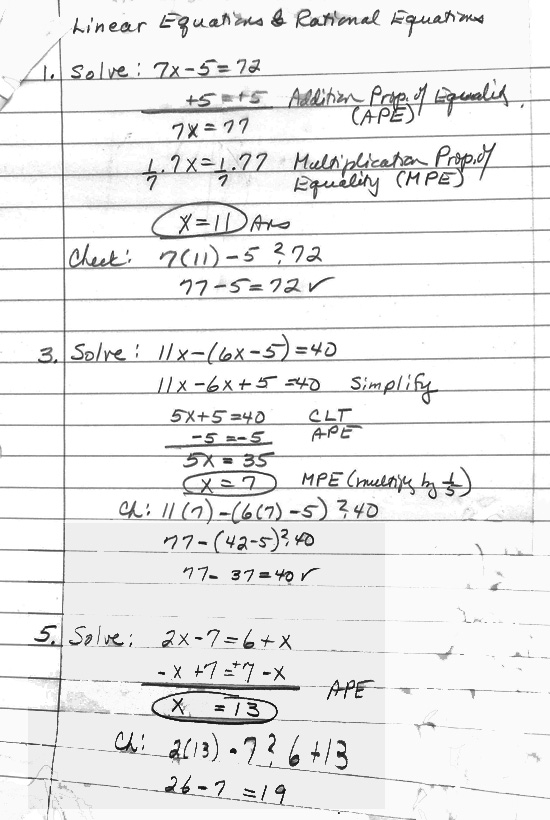 Linear Equations & Rational Equations
1. Solve: 7x-5=72
+5=+5 Addition Prop. of Equality.
(APE)
7x=77
1/7·7x=1/7·77 Multiplication Prop. of
Equality (MPE)
x=11 Ans
Check: 7(11)-5 ? 72
77-5=72 ✓
3. Solve: 11x-(6x-5)=40
11x-6x+5=40 Simplify
5x+5=40 CLT
-5=-5 APE
5x=35
x=7 MPE (multiply by 1/5)
Ch: 11(7)-(6(7)-5) ? 40
77-(42-5) ? 40
77-37=40 ✓
5. Solve: 2x-7=6+x
-x+7=+7-x
APE
x=13
Ch: 2(13)-7 ? 6+13
26-7=19